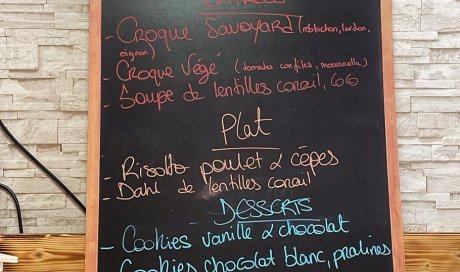 - Croque Savoyard (reblochon, lardon,
oignon)
- Croque Végé (tomates confites, mozzarella)
- Soupe de lentilles corail, coco
Plat
- Risotto poulet & cèpes
- Dahl de lentilles corail
DESSERTS
- Cookies vanille & chocolat
Cookies chocolat blanc, pralines